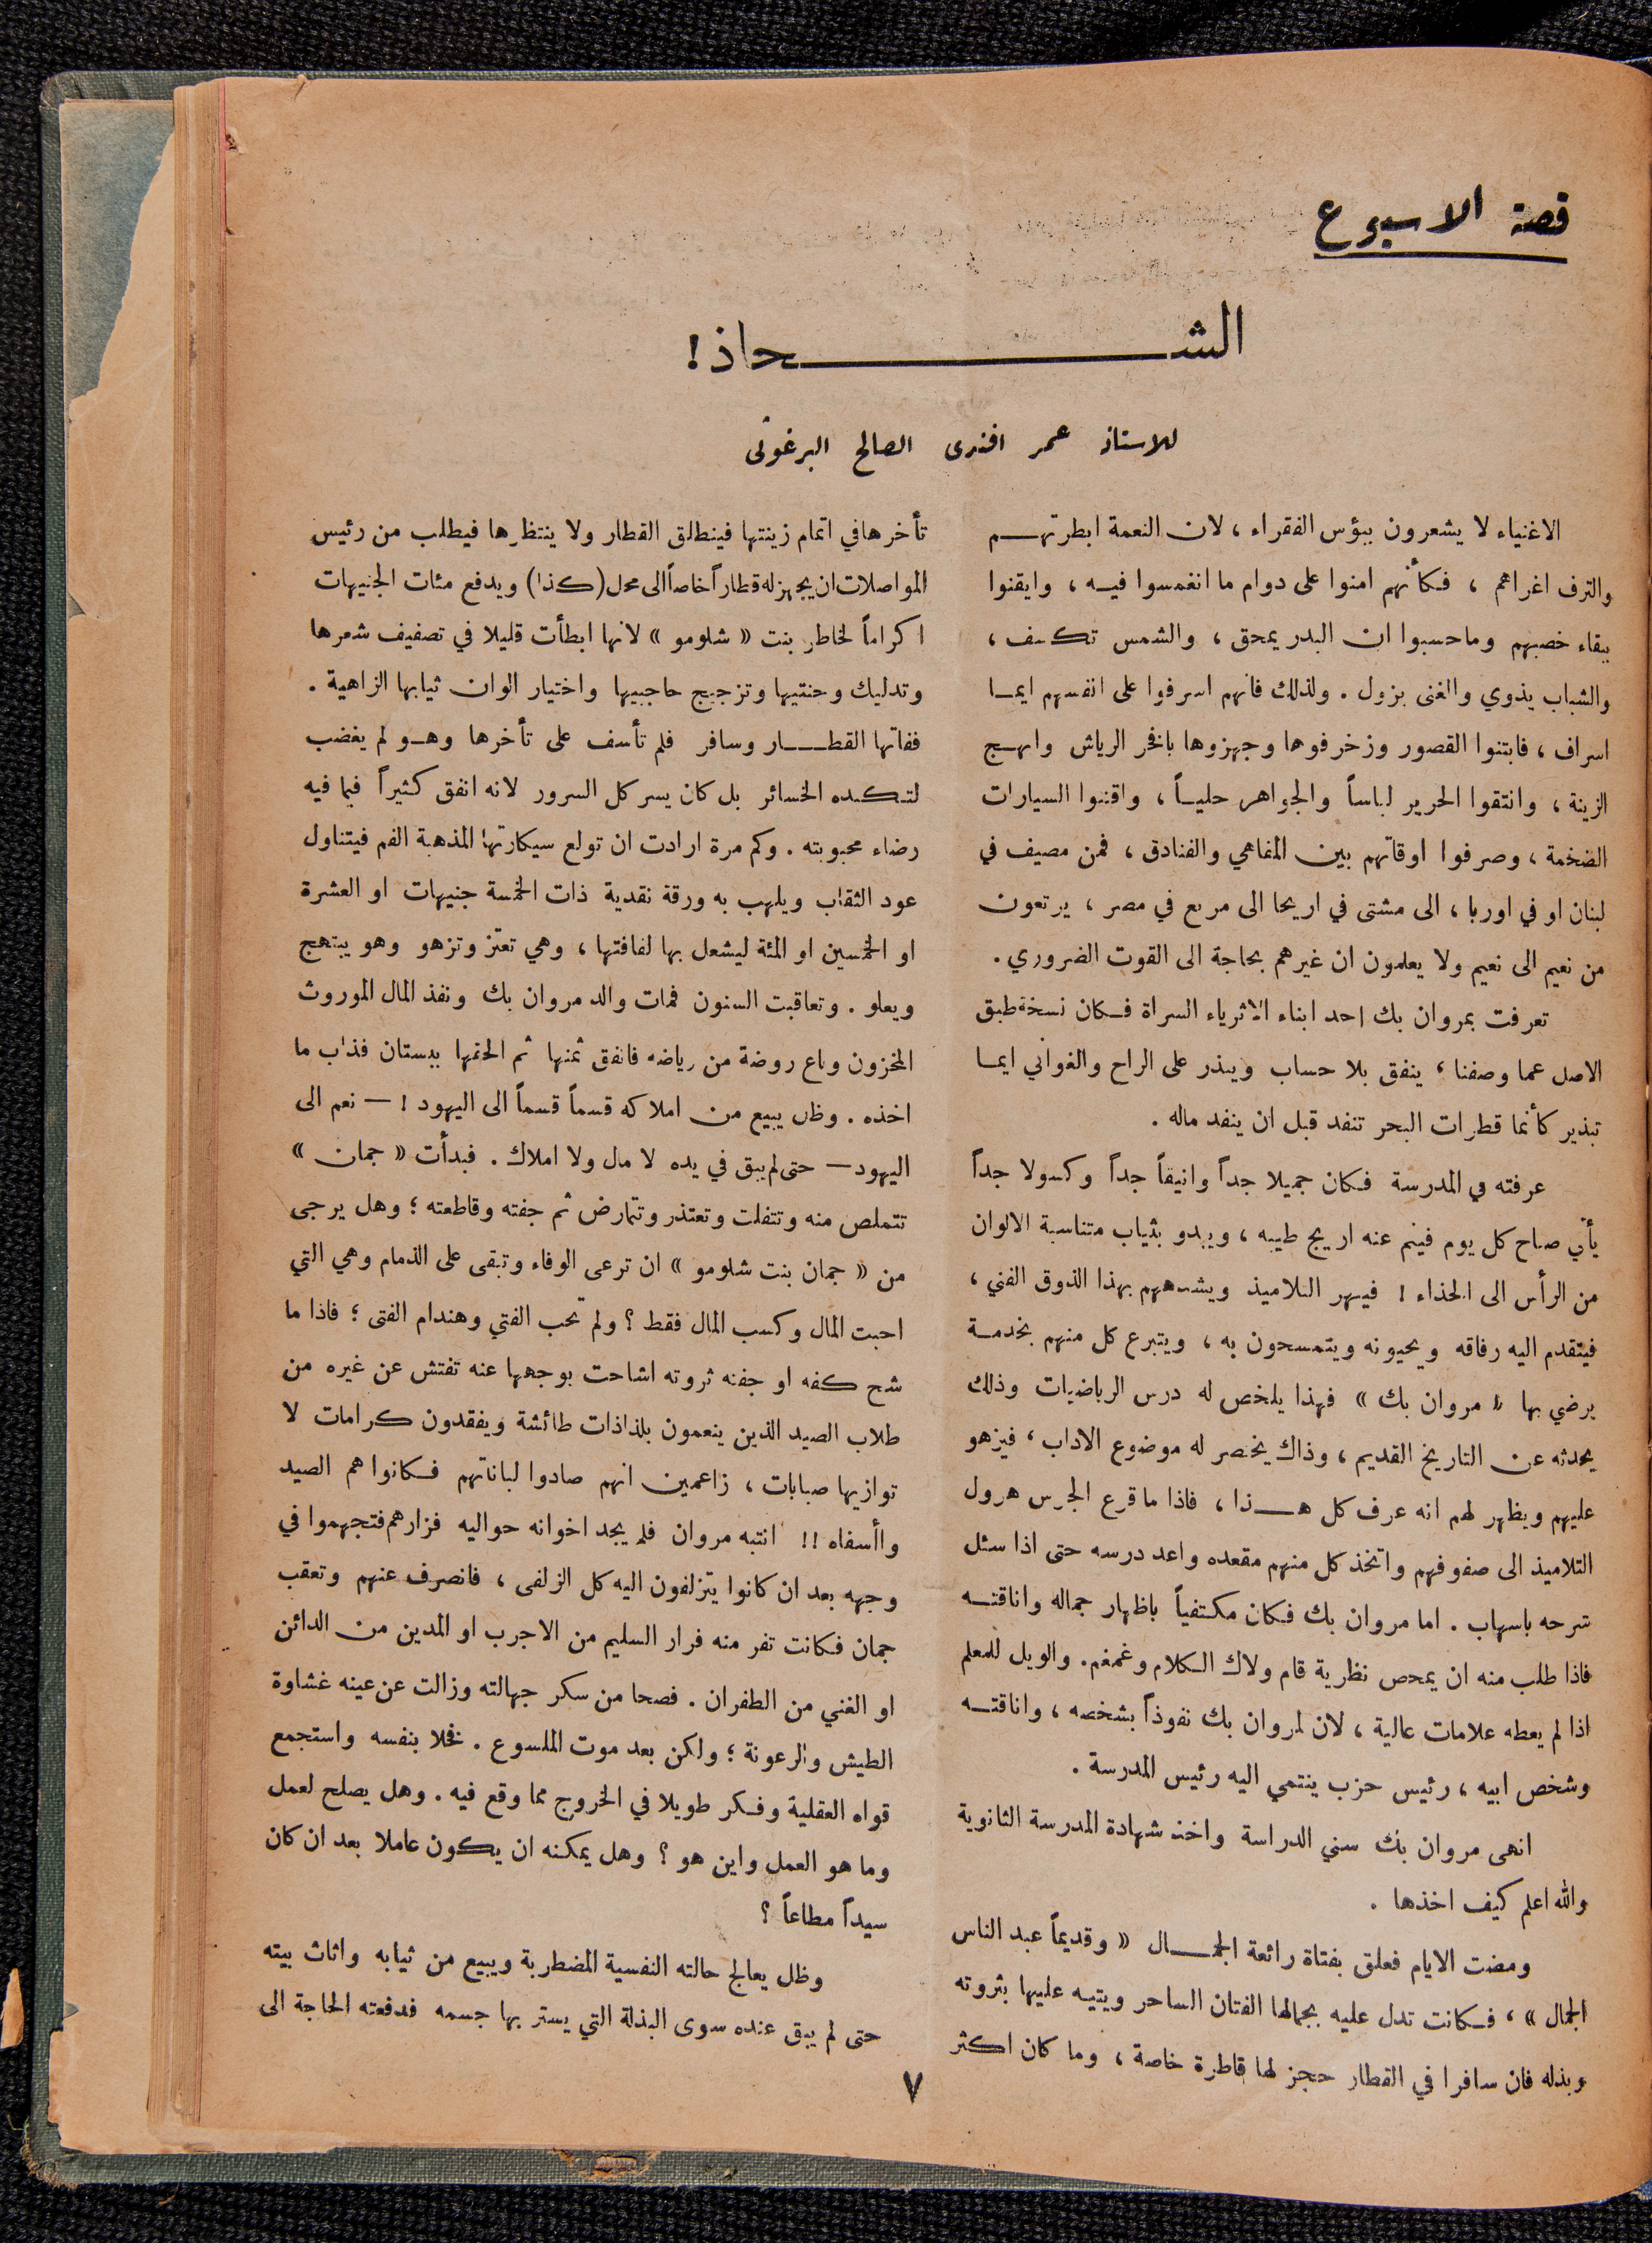 قصة الاسبوع
الشحاذ!
للاستاذ عمر افندى الصالح البرغوثى
الاغنياء لا يشعرون ببؤس الفقراء ، لان النعمة ابطرتهم
والترف اغراهم ، فكأنهم امنوا على دوام ما انغمسوا فيه ، وايقنوا
ببقاء خصبهم وما حسبوا ان البدر يمحق ، والشمس تكسف ،
والشباب يذوي والغنى يزول . ولذلك فانهم اسرفوا على انفسهم ايما
اسراف ، فابتنوا القصور وزخرفوها وجهزوها بافخر الرياش وابهج
الزينة ، وانتقوا الحرير لباساً والجواهر حلياً ، واقتنوا السيارات
الضخمة ، وصرفوا اوقاتهم بين المقاهي والفنادق ، فمن مصيف في
لبنان او في اوربا ، الى مشتى في اريحا الى مربع في مصر ، يرتعون
من نعيم الى نعيم ولا يعلمون ان غيرهم بحاجة الى القوت الضروري .
تعرفت بمروان بك احد ابناء الاثرياء السراة فكان نسخة طبق
الاصل عما وصفنا ، ينفق بلا حساب ويبذر على الراح والغواني ايما
تبذير كأنما قطرات البحر تنفد قبل ان ينفد ماله .
عرفته في المدرسة فكان جميلا جداً وانيقاً جداً وكسولا جداً
يأتي صباح كل يوم فينم عنه اريج طيبه ، ويبدو بثياب متناسبة الالوان
من الرأس الى الحذاء ! فيبهر التلاميذ ويشدههم بهذا الذوق الفني ،
فيتقدم اليه رفاقه ويحيونه ويتمسحون به ، ويتبرع كل منهم بخدمة
يرضي بها « مروان بك » فهذا يلخص له درس الرياضيات وذلك
يحدثه عن التاريخ القديم ، وذاك يختصر له موضوع الاداب ، فيزهو
عليهم ويظهر لهم انه عرف كل هذا ، فاذا ما قرع الجرس هرول
التلاميذ الى صفوفهم واتخذ كل منهم مقعده واعد درسه حتى اذا سئل
شرحه باسهاب . اما مروان بك فكان مكتفياً باظهار جماله واناقته
فاذا طلب منه ان يمحص نظرية قام ولاك الكلام وغمغم . والويل للمعلم
اذا لم يعطه علامات عالية ، لان لمروان بك نفوذاً بشخصه ، واناقته
وشخص ابيه ، رئيس حزب ينتمي اليه رئيس المدرسة .
انهى مروان بك سني الدراسة واخذ شهادة المدرسة الثانوية
والله اعلم كيف اخذها .
ومضت الايام فعلق بفتاة رائعة الجمال « وقديماً عبد الناس
الجمال » ، فكانت تدل عليه بجمالها الفتان الساحر ويتيه عليها بثروته
وبذله فان سافرا في القطار حجز لها قاطرة خاصة ، وما كان اكثر
تأخرها في اتمام زينتها فينطلق القطار ولا ينتظرها فيطلب من رئيس
المواصلات ان يجهز له قطاراً خاصاً الى محل (كذا) ويدفع مئات الجنيهات
اكراماً لخاطر بنت « شلومو » لانها ابطأت قليلا في تصفيف شعرها
وتدليك وجنتيها وتزجيج حاجبيها واختيار الوان ثيابها الزاهية .
ففاتها القطار وسافر فلم تأسف على تأخرها وهو لم يغضب
لتكبده الخسائر بل كان يسر كل السرور لانه انفق كثيراً فيما فيه
رضاء محبوبته . وكم مرة ارادت ان تولع سيكارتها المذهبة الفم فيتناول
عود الثقاب ويلهب به ورقة نقدية ذات الخمسة جنيهات او العشرة
او الخمسين او المئة ليشعل بها لفافتها ، وهي تعتز وتزهو وهو يبتهج
ويعلو . وتعاقبت السنون فمات والد مروان بك ونفذ المال الموروث
المخزون وباع روضة من رياضه فانفق ثمنها ثم الحقها ببستان فذاب ما
اخذه . وظل يبيع من املاكه قسماً قسماً الى اليهود ! — نعم الى
اليهود — حتى لم يبق في يده لا مال ولا املاك . فبدأت « جمان »
تتملص منه وتتفلت وتعتذر وتتمارض ثم جفته وقاطعته ؛ وهل يرجى
من « جمان بنت شلومو » ان ترعى الوفاء وتبقى على الذمام وهي التي
احبت المال وكسب المال فقط ؟ ولم تحب الفتي وهندام الفتى ؛ فاذا ما
شح كفه او جفنه ثروته اشاحت بوجهها عنه تفتش عن غيره من
طلاب الصيد الذين ينعمون بلذاذات طائشة ويفقدون كرامات لا
توازيها صبابات ، زاعمين انهم صادوا لباناتهم فكانوا هم الصيد
واأسفاه !! انتبه مروان فلم يجد اخوانه حواليه فزارهم فتجهموا في
وجهه بعد ان كانوا يتزلفون اليه كل الزلفى ، فانصرف عنهم وتعقب
جمان فكانت تفر منه فرار السليم من الاجرب او المدين من الدائن
او الغني من الطفران . فصحا من سكر جهالته وزالت عن عينه غشاوة
الطيش والرعونة ؛ ولكن بعد موت الملسوع . فخلا بنفسه واستجمع
قواه العقلية وفكر طويلا في الخروج مما وقع فيه . وهل يصلح لعمل
وما هو العمل واين هو ؟ وهل يمكنه ان يكون عاملا بعد ان كان
سيداً مطاعاً ؟
وظل يعالج حالته النفسية المضطربة ويبيع من ثيابه واثاث بيته
حتى لم يبق عنده سوى البذلة التي يستر بها جسمه فدفعته الحاجة الى
٧